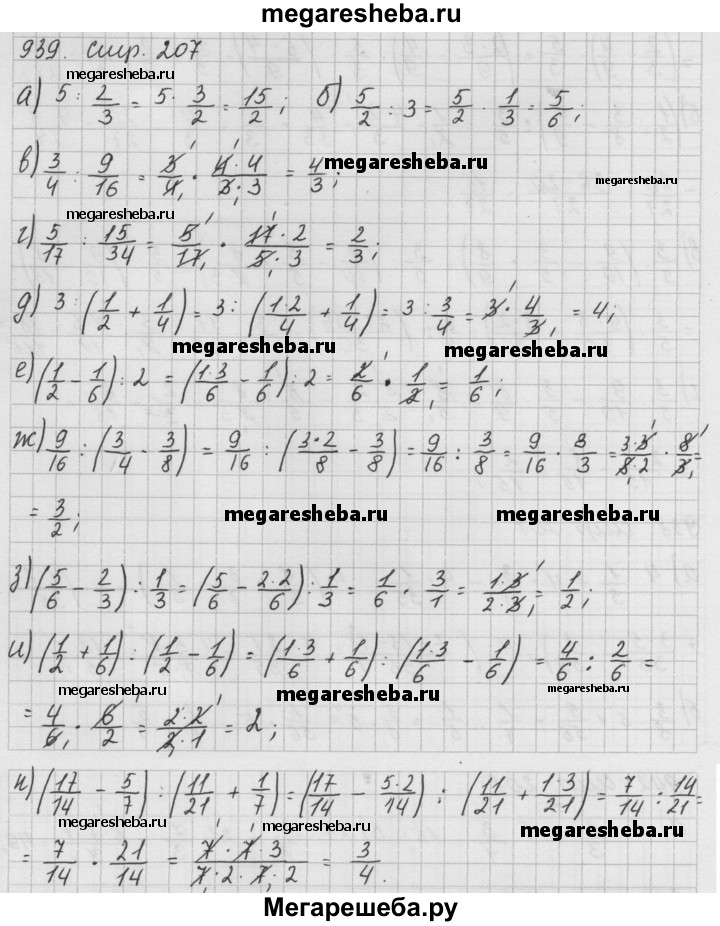 megaresheba.ru
939. стр. 207
megaresheba.ru
а) 5 : 2/3 = 5 · 3/2 = 15/2; б) 5/2 : 3 = 5/2 · 1/3 = 5/6;
megaresheba.ru
в) 3/4 : 9/16 = 3/4 · 4·4/3·3 = 4/3;
megaresheba.ru
megaresheba.ru
megaresheba.ru
г) 5/17 : 15/34 = 5/17 · 17·2/5·3 = 2/3;
д) 3 : (1/2 + 1/4) = 3 : (1·2/4 + 1/4) = 3 : 3/4 = 3 · 4/3 = 4;
megaresheba.ru megaresheba.ru
е) (1/2 - 1/6) : 2 = (1·3/6 - 1/6) : 2 = 2/6 · 1/2 = 1/6;
megaresheba.ru
ж) 9/16 : (3/4 - 3/8) = 9/16 : (3·2/8 - 3/8) = 9/16 : 3/8 = 9/16 · 8/3 = 3·3/8·2 · 8/3 =
= 3/2;
megaresheba.ru megaresheba.ru
з) (5/6 - 2/3) : 1/3 = (5/6 - 2·2/6) : 1/3 = 1/6 · 3/1 = 1·3/2·3 = 1/2;
и) (1/2 + 1/6) : (1/2 - 1/6) = (1·3/6 + 1/6) : (1·3/6 - 1/6) = 4/6 : 2/6 =
megaresheba.ru megaresheba.ru megaresheba.ru
= 4/6 · 6/2 = 2·2/2·1 = 2;
к) (17/14 - 5/7) : (11/21 + 1/7) = (17/14 - 5·2/14) : (11/21 + 1·3/21) = 7/14 : 14/21 =
megaresheba.ru megaresheba.ru megaresheba.ru
= 7/14 · 21/14 = 7·7·3/7·2·7·2 = 3/4.
Мегарешеба.ру